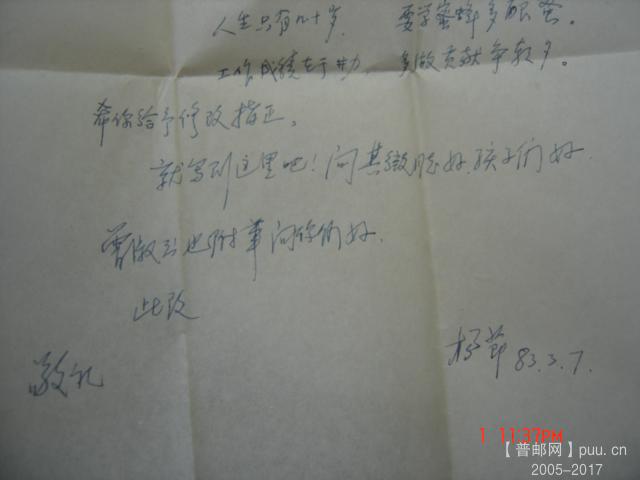 人生只有几十岁，　要学蜜蜂多酿蜜。
工作成绩在于力，多做贡献争朝夕。
希你给予修改指正。
就写到这里吧！问其好，孩子们好，
曾也附笔问你们好，
此致
敬礼
杨 83.3.7.
1 11:37PM
【普邮网】puu.cn
2005-2017